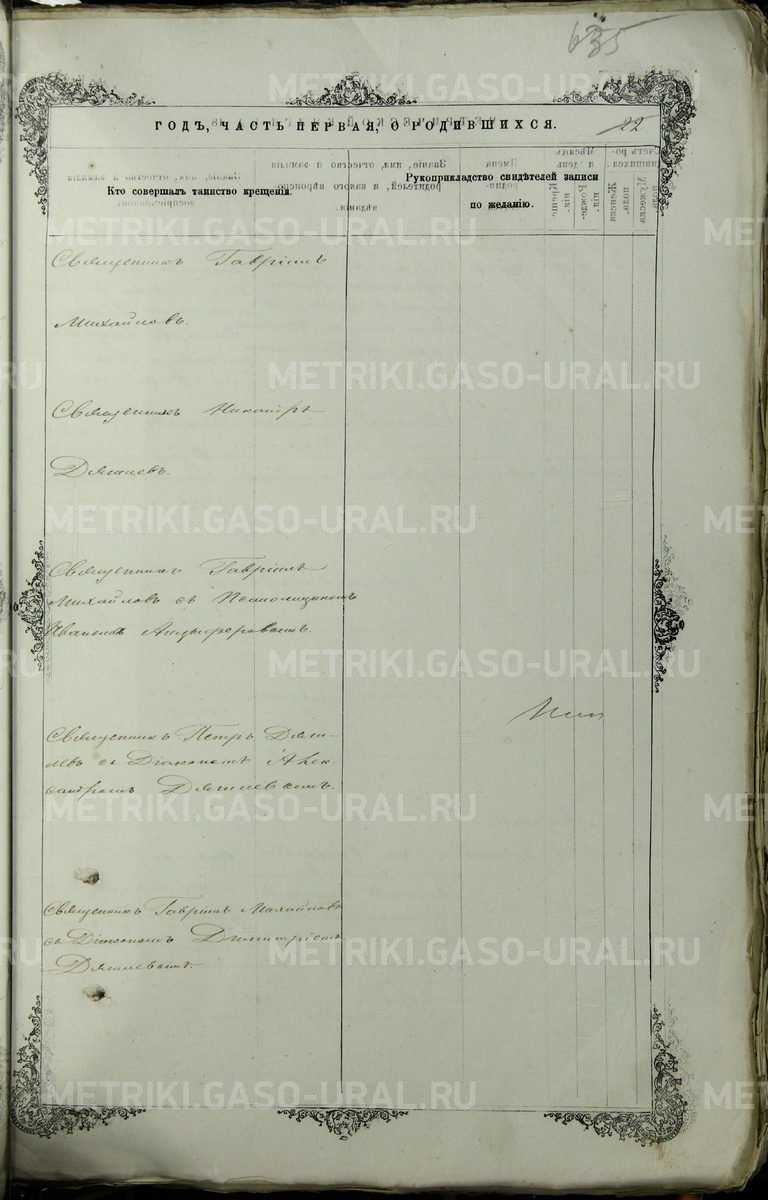 635
22
ГОДЪ, ЧАСТЬ ПЕРВАЯ, О РОДИВШИХСЯ.
Кто совершалъ таинство крещенія.
Рукоприкладство свидѣтелей записи
по желанію.
Священникъ Гавріилъ
Михайловъ.
Священникъ Никаноръ
Дягилевъ.
Священникъ Гавріилъ
Михайловъ съ Псаломщикомъ
Иваномъ Анцыферовымъ.
Священникъ Петръ Дяги-
левъ съ Діакономъ Алек-
сандромъ Дягилевымъ.
Священникъ Гавріилъ Михайловъ
съ Діакономъ Димитріемъ
Дягилевымъ.
METRIKI.GASO-URAL.RU